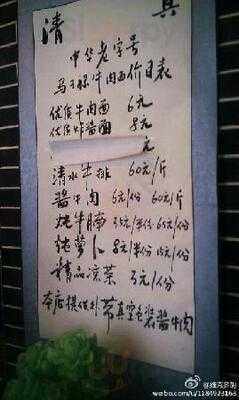 清 真
中华老字号
马子禄牛肉面价目表
优质牛肉面 6元
优质炸酱面 8元
元
清水牛排 60元/斤
酱牛肉 6元/份 60元/斤
炖牛腩 35元/半份 65元/份
炖萝卜 8元/半份 15元/份
精品凉菜 3元/份
本店提供外带真空包装酱牛肉
weibo.com/u/1184923163